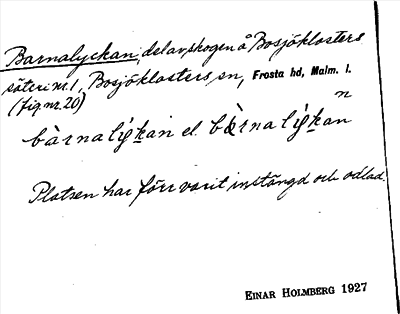 Barnalyckan, del av skogen å Bosjöklosters
säteri nr. 1, Bosjöklosters sn, Frosta hd, Malm. l.
(fig nr. 20)
bàrnalyk̲an el. bàrnalyk̲an
n
Platsen har förr varit instängd och odlad.
EINAR HOLMBERG 1927